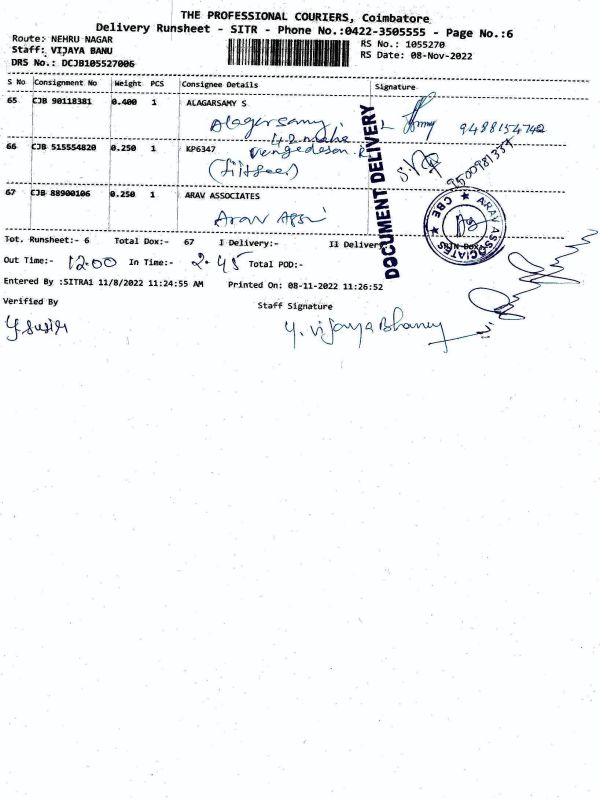 THE PROFESSIONAL COURIERS, Coimbatore
Delivery Runsheet - SITR - Phone No.:0422-3505555 - Page No.:6
Route: NEHRU NAGAR
RS No.: 1055270
Staff: VIJAYA BANU
RS Date: 08-Nov-2022
DRS No.: DCJB105527006
S No Consignment No Weight PCS Consignee Details Signature
65 CJB 90118381 0.400 1 ALAGARSAMY S
Alagarsamy
9488154742
66 CJB 515554820 0.250 1 KP6347
9500981337
67 CJB 88900106 0.250 1 ARAV ASSOCIATES
Arav
DOCUMENT DELIVERY
ARAV ASSOCIATES ★ CBE ★
Tot. Runsheet:- 6 Total Dox:- 67 I Delivery:- II Delivery
Out Time:- 12.00 In Time:- 2.45 Total POD:-
Entered By :SITRA1 11/8/2022 11:24:55 AM Printed On: 08-11-2022 11:26:52
Verified By
Staff Signature
Y. Vijaya Bhanu